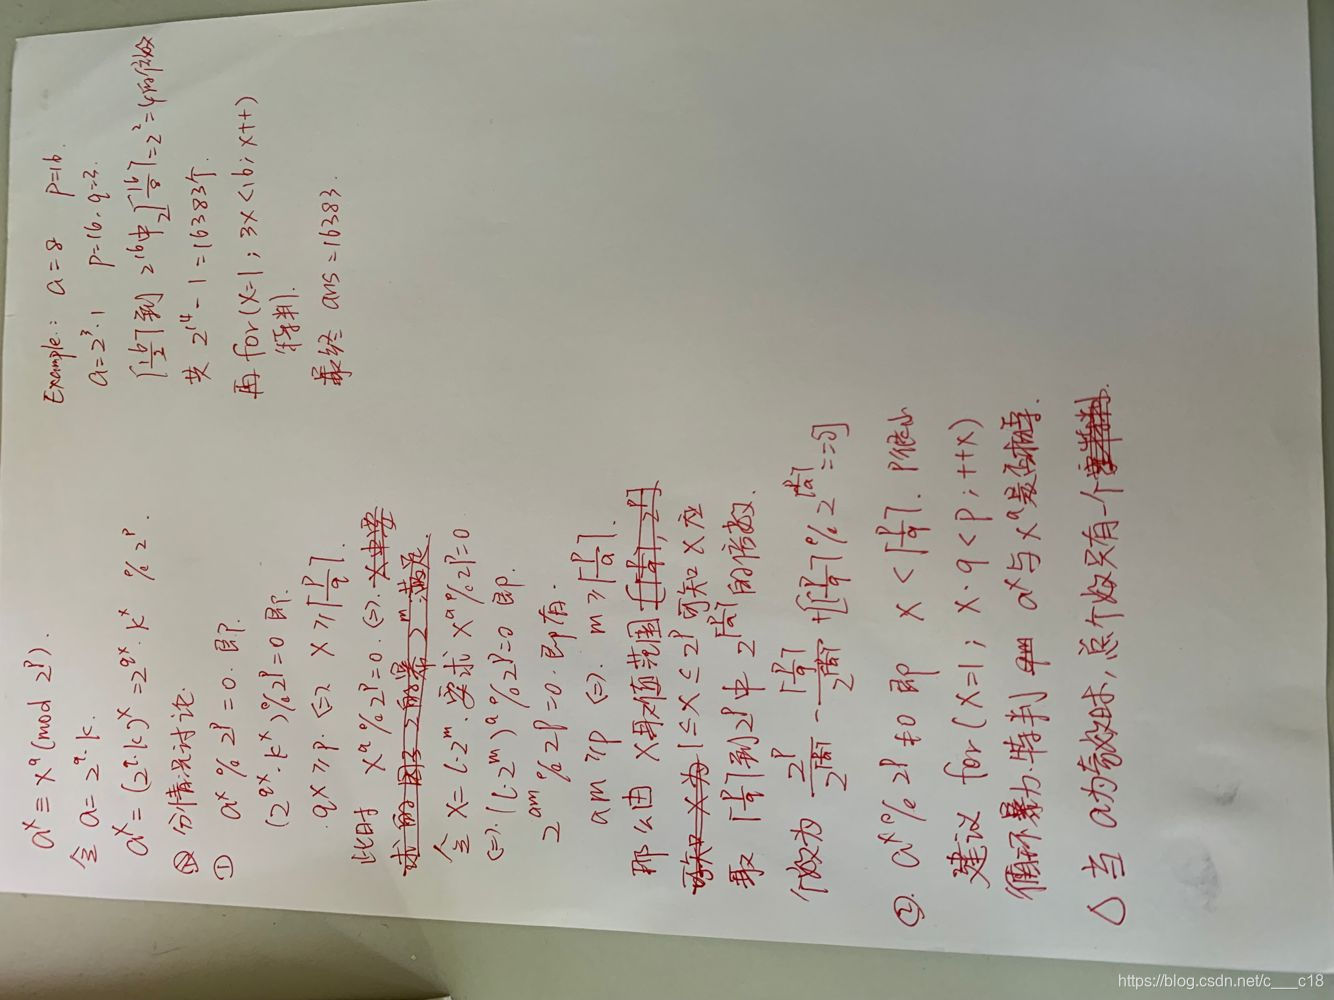 aˣ ≡ xᵃ (mod 2ᵖ).
令 a = 2^q·k.
aˣ = (2^q·k)ˣ = 2^(qx)·kˣ % 2ᵖ
分情况讨论.
① aˣ % 2ᵖ = 0. 即.
(2^(qx)·kˣ) % 2ᵖ = 0 即.
qx ≥ p. <=> x ≥ ⌈p/q⌉.
此时 xᵃ % 2ᵖ = 0. <=>.
令 x = l·2ᵐ. 要求 xᵃ % 2ᵖ = 0
<=>. (l·2ᵐ)ᵃ % 2ᵖ = 0 即.
2^(am) % 2ᵖ = 0. 即有.
am ≥ p <=>. m ≥ ⌈p/a⌉.
那么由 x取值范围
1 ≤ x ≤ 2ᵖ 可知 x 应
取 ⌈p/q⌉ 到 2ᵖ 中 2^⌈p/a⌉ 的倍数.
个数为 2ᵖ/2^⌈p/a⌉ - ⌈p/q⌉/2^⌈p/a⌉ + [⌈p/q⌉ % 2^⌈p/a⌉ == 0]
②. aˣ % 2ᵖ ≠ 0 即 x < ⌈p/q⌉. p很小
建议 for (x=1; x·q < p; ++x)
循环暴力特判 aˣ 与 xᵃ 是否相等.
△ 当 a为奇数时, 总个数只有一个
Example: a = 8 p=16.
a = 2³·1 p=16. q=3.
⌈16/3⌉ 到 2¹⁶中 2^⌈16/8⌉ = 2² = 4 的倍数
共 2¹⁴ - 1 = 16383个.
再 for (x=1; 3x < 16; x++)
特判.
最终 ans = 16383.
https://blog.csdn.net/c___c18